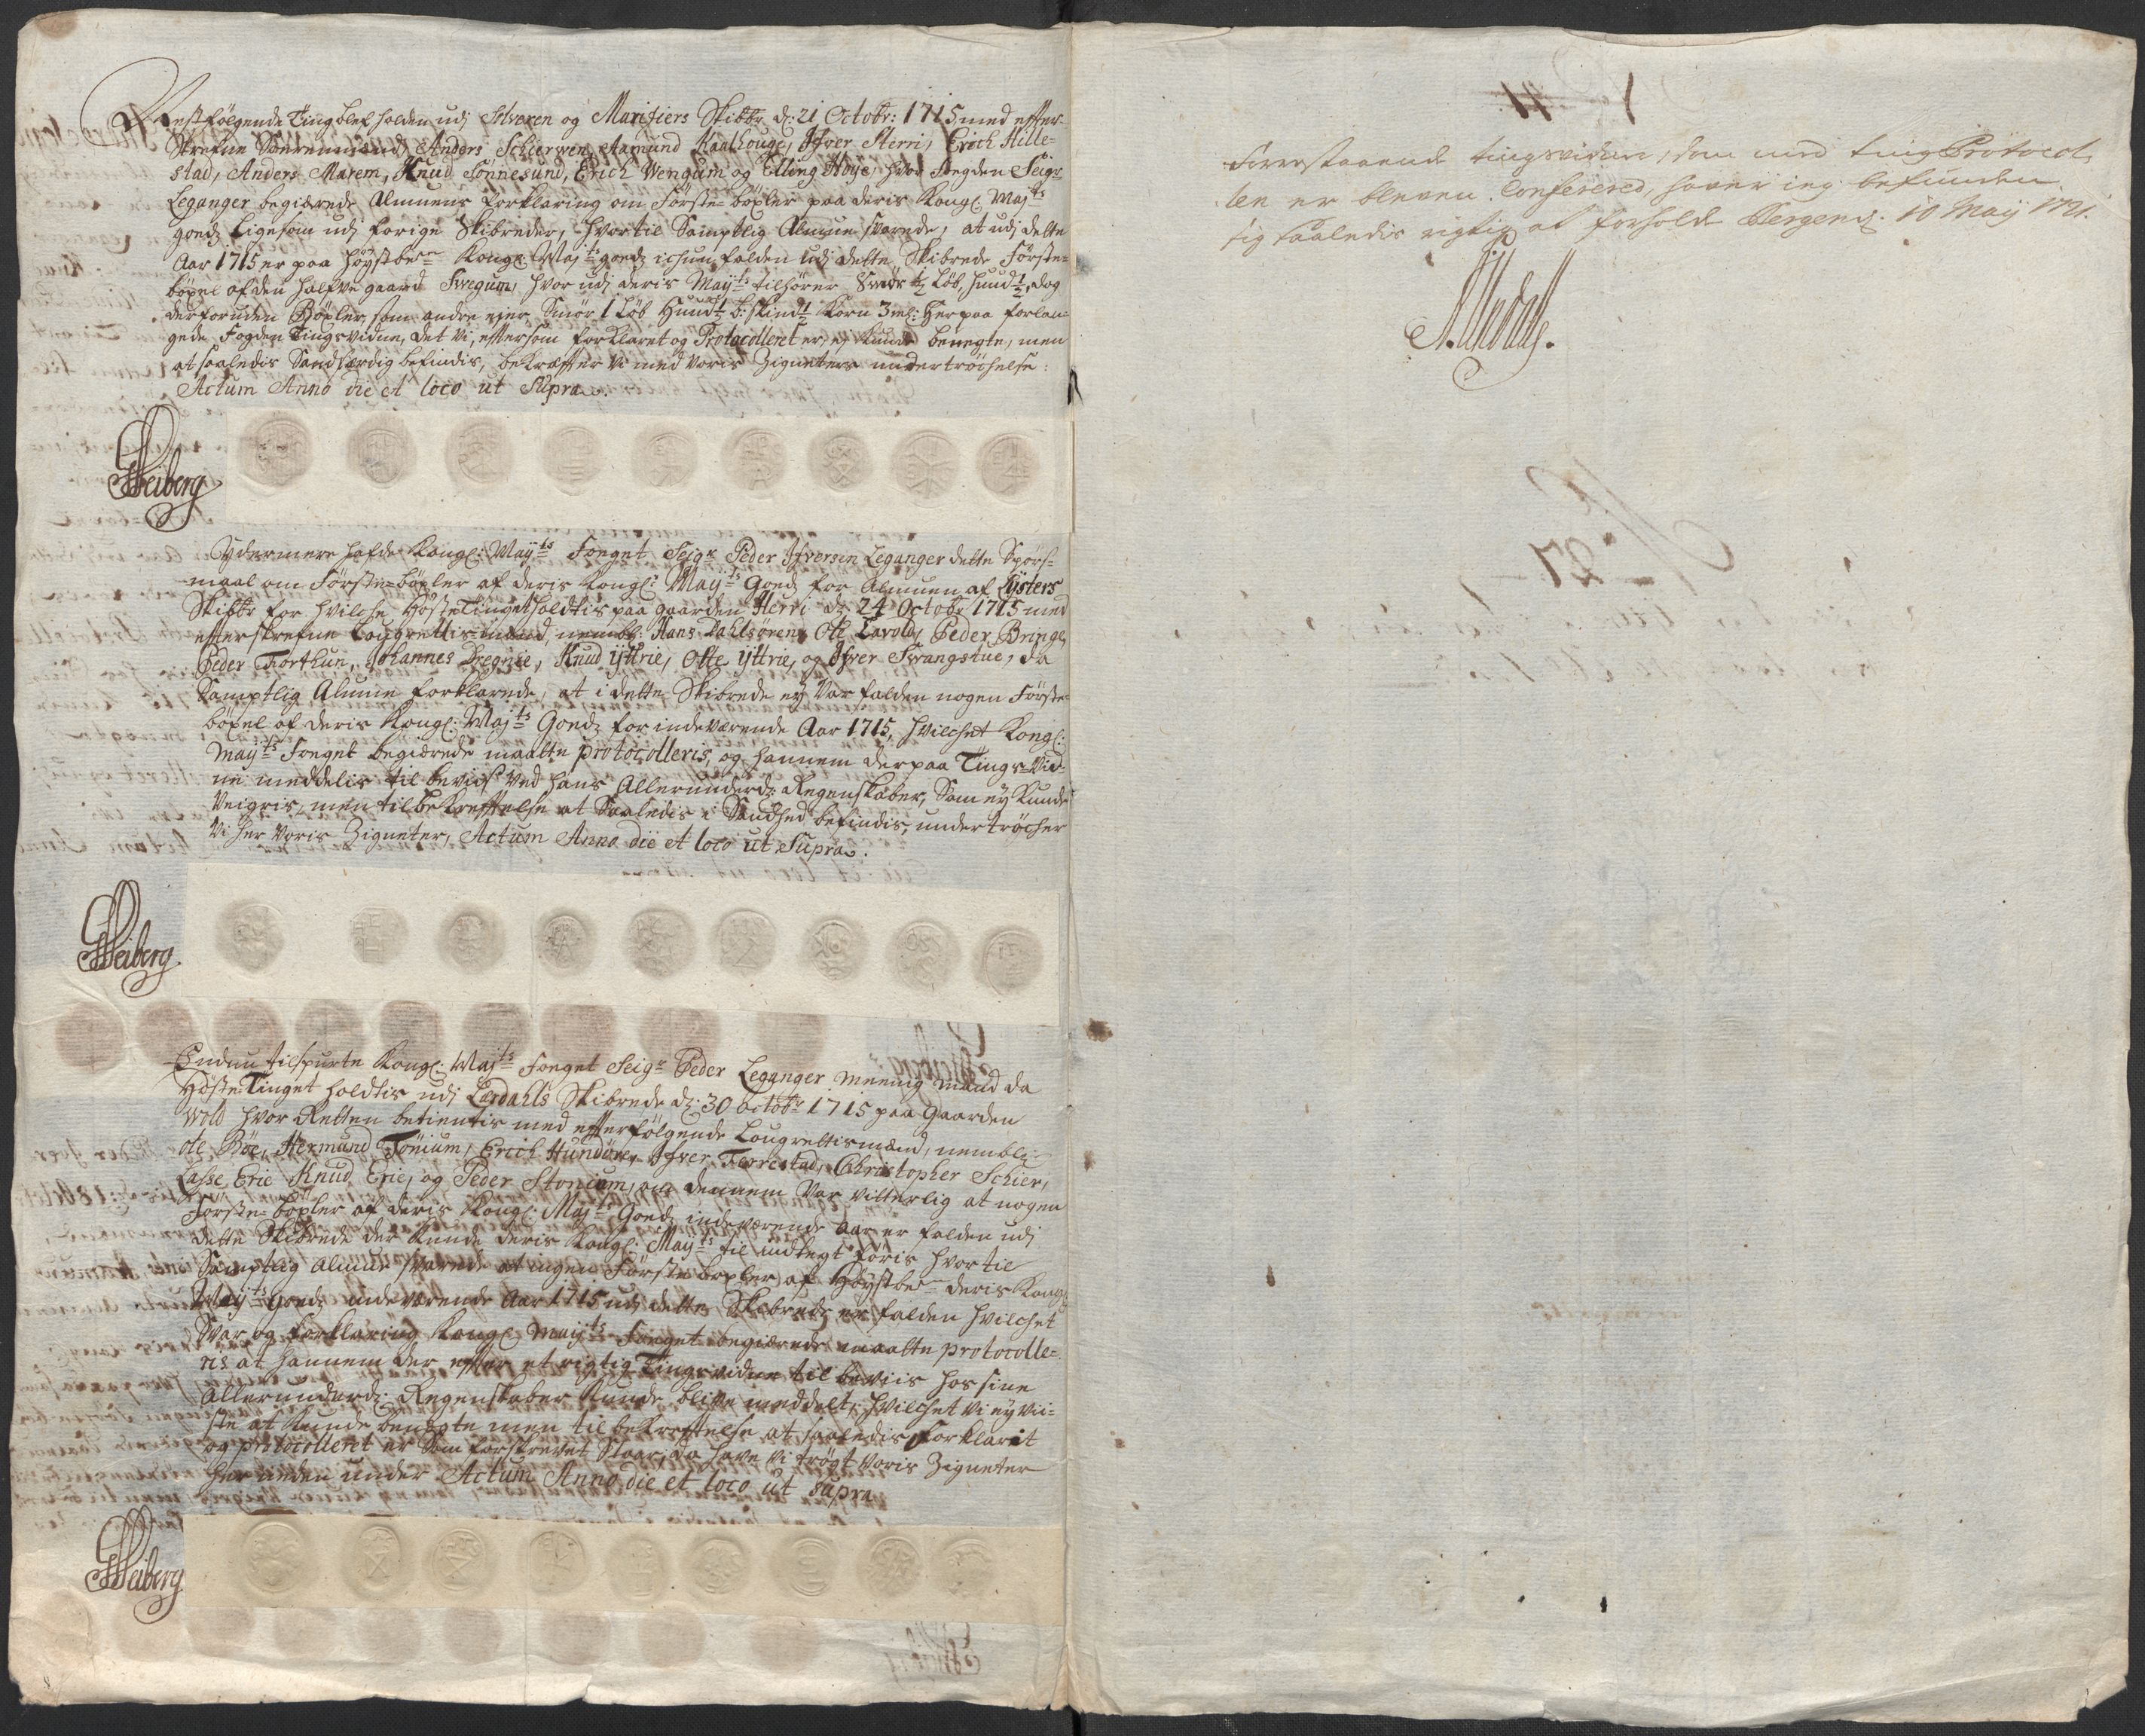 Næstfølgende Tingblef holden udj Solvoren og Marifiers Skibbr d: 21 Octobr: 1715 med efter-
Skrefne Sorenmænd, Anders Schierven, Aamund Kaalhouge, Ifver Herri, Erich Hille-
stad, Anders Marem, Knud Sønnesund, Erich Wengum og Elling Høye, hvor Fogden Seigr
Leganger begiærede Almuens forklaring om Første-böxler paa deris Kongl: Majts
goedz ligesom udj forige Skibreder, hvortil Samptlig Almue svarede, at udj dette
Aar 1715 er paa høystber: Kongl: Majts goedz ichun falden udj dette Skibrede Første-
böxel af den halfve gaard Svegum, hvor udj deris Mayts tilhører Smör ½ Löb, huud ½, dog
derforuden Böxler som andre eier Smör 1 Löb Huud ½ b: skind ½ Korn 3 ml: Herpaa forlan-
gede Fogden Tingsvidne, det vi, eftersom forklaret og Protocolleret er, ej kunde benegte, men
at saaledis Sandfærdig befindis, bekræfter vi med voris Zigneters undertröchelse:
Actum Anno die et loco ut Supra.
Ydermere hafde Kongl: Mayts Foeget Seigr Peder Ifversen Leganger dette Spørs-
maal om Første-böxler af deris Kongl: Mayts Goedz for Almuen af Lysters
Skibbr for hvilche HøsteTinget holdtis paa gaarden Herri d: 24 Octobr 1715 med
efterskrefne Laugrettismænd, nembl: Hans Dahlsören, Ole Larold, Peder Bringe,
Peder Forthun, Johannes Dregnie, Knud Yttrie, Otte Yttrie, og Ifver Svangstue, da
Samptlig Almue forklarede, at i dette Skibrede ey var falden nogen Første-
böxel af deris Kongl: Majts Goedz for indeværende Aar 1715, hvilchet Kongl:
Mayts Foeget begiærede maatte protocolleris, og hannem derpaa Tings-Vid-
ne meddelis til beviis ved hans Allerunderd: Regenskaber, Som ey kunde
Veigris, men til bekreftelse at Saaledis i Sandhed befindis, undertröcher
Vi her voris Zigneter, Actum Anno die et loco ut Supra.
Endnu tilspurte Kongl: Majts Foeget Seigr Peder Leganger meenig mand da
HøsteTinget holdtis udj Lærdahls Skibrede d: 30 octobr 1715 paa Gaarden
Wold hvor Retten betientis med efterfølgende Laugrettismænd, nembl:
Ole Böe, Hermund Tönium, Erich Hundöre, Ifver Ferrestad, Christopher Schier,
Lasse Erie Knud Erie, og Peder Stonium, om dennem var vitterlig at nogen
Første-böxler af deris Kongl: Majts Goedz indeværende aar er falden udj
dette Skibrede der kunde deris Kongl: Mayts til indtegt föris hvortil
Samptlig Almue svarede at ingen Første böxler af Høystber deris Kongl
Mayts Goedz indeværende Aar 1715 udj dette Skibrede er falden hvilchet
Svar og forklaring Kongl: Mayts Foeget begiærede maatte protocolle-
ris at hannem der efter et rigtig Tingsvidne til beviis hos sine
Allerunderd: Regenskaber kunde blive meddelt, hvilchet vi ey vii-
ste at kunde benegte men til bekreftelse at saaledis forklaret
og protocolleret er Som forskrevet Staar, da have vi tröyt voris Zigneter
her neden under Actum Anno die et loco ut supra
Foranstaaende tingsvidne, som med tingProtocol-
len er bleven Confereret, haver ieg befunden
sig saaledis rigtig at forholde Bergen d: 10 Maij 1721.